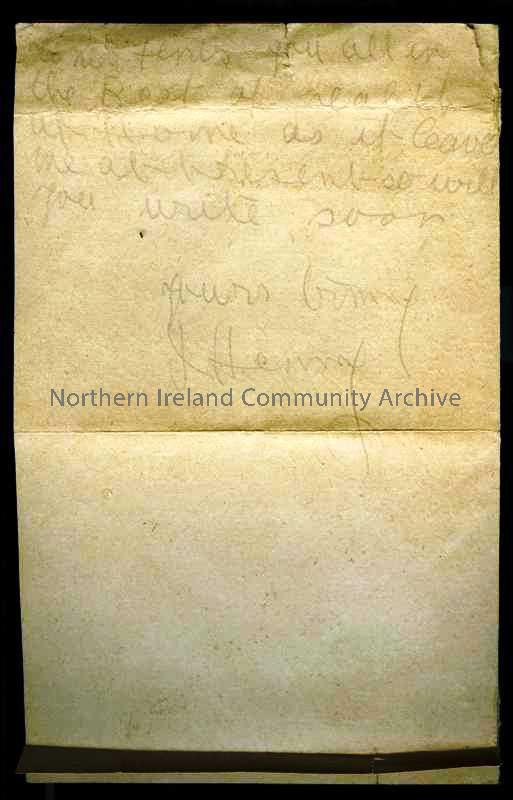 finds you all in
the Best of health
at Home as it leaves
me at present so will
you write soon
yours
J Hanna
Northern Ireland Community Archive